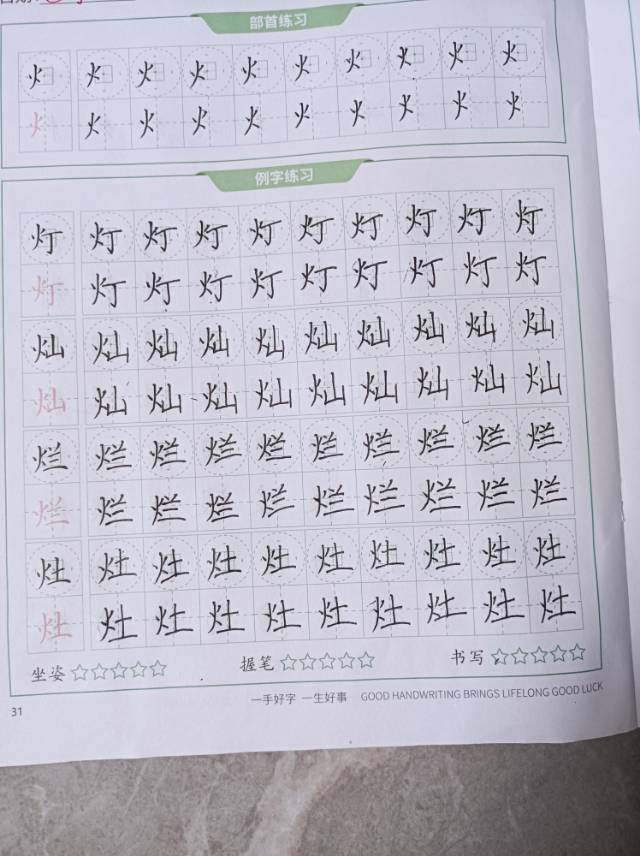 部首练习
火 火 火 火 火 火 火 火 火 火
火 火 火 火 火 火 火 火 火 火
例字练习
灯 灯 灯 灯 灯 灯 灯 灯 灯 灯
灯 灯 灯 灯 灯 灯 灯 灯 灯 灯
灿 灿 灿 灿 灿 灿 灿 灿 灿 灿
灿 灿 灿 灿 灿 灿 灿 灿 灿 灿
烂 烂 烂 烂 烂 烂 烂 烂 烂 烂
烂 烂 烂 烂 烂 烂 烂 烂 烂 烂
灶 灶 灶 灶 灶 灶 灶 灶 灶 灶
灶 灶 灶 灶 灶 灶 灶 灶 灶 灶
坐姿☆☆☆☆☆ 握笔☆☆☆☆☆ 书写☆☆☆☆☆
31 一手好字 一生好事 GOOD HANDWRITING BRINGS LIFELONG GOOD LUCK